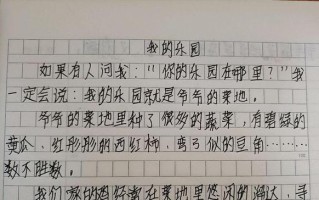 我的乐园
如果有人问我:“你的乐园在哪里？”我
一定会说:我的乐园就是爷爷的菜地。
爷爷的菜地里种了很多的蔬菜,有碧绿的
黄瓜、红彤彤的西红柿、弯弓似的豆角……
数不胜数。
我们
经常在菜地里悠闲的溜达,寻